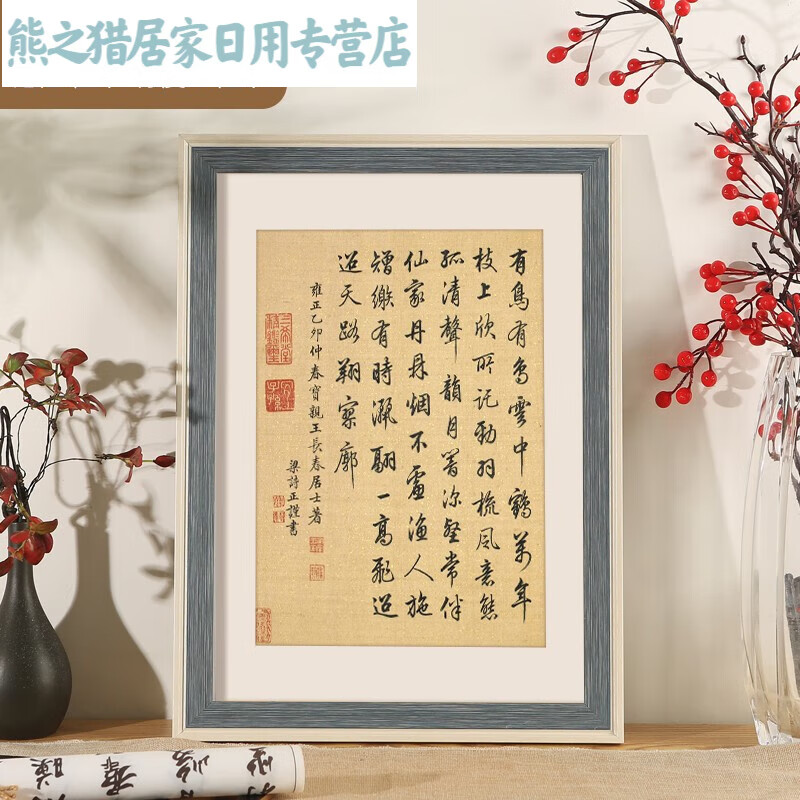 熊之猎居家日用专营店
有鳥有鳥雲中鶴萬年
枝上欣所託勁羽梳風意態
孤清聲韻月深壑常伴
仙家丹鼎烟不慮漁人施
矰繳有時翮一高飛迢
迢天路翔寥廓
雍正乙卯仲春寶親王長春居士著
梁詩正謹書
三希堂精鑑璽
宜子孫